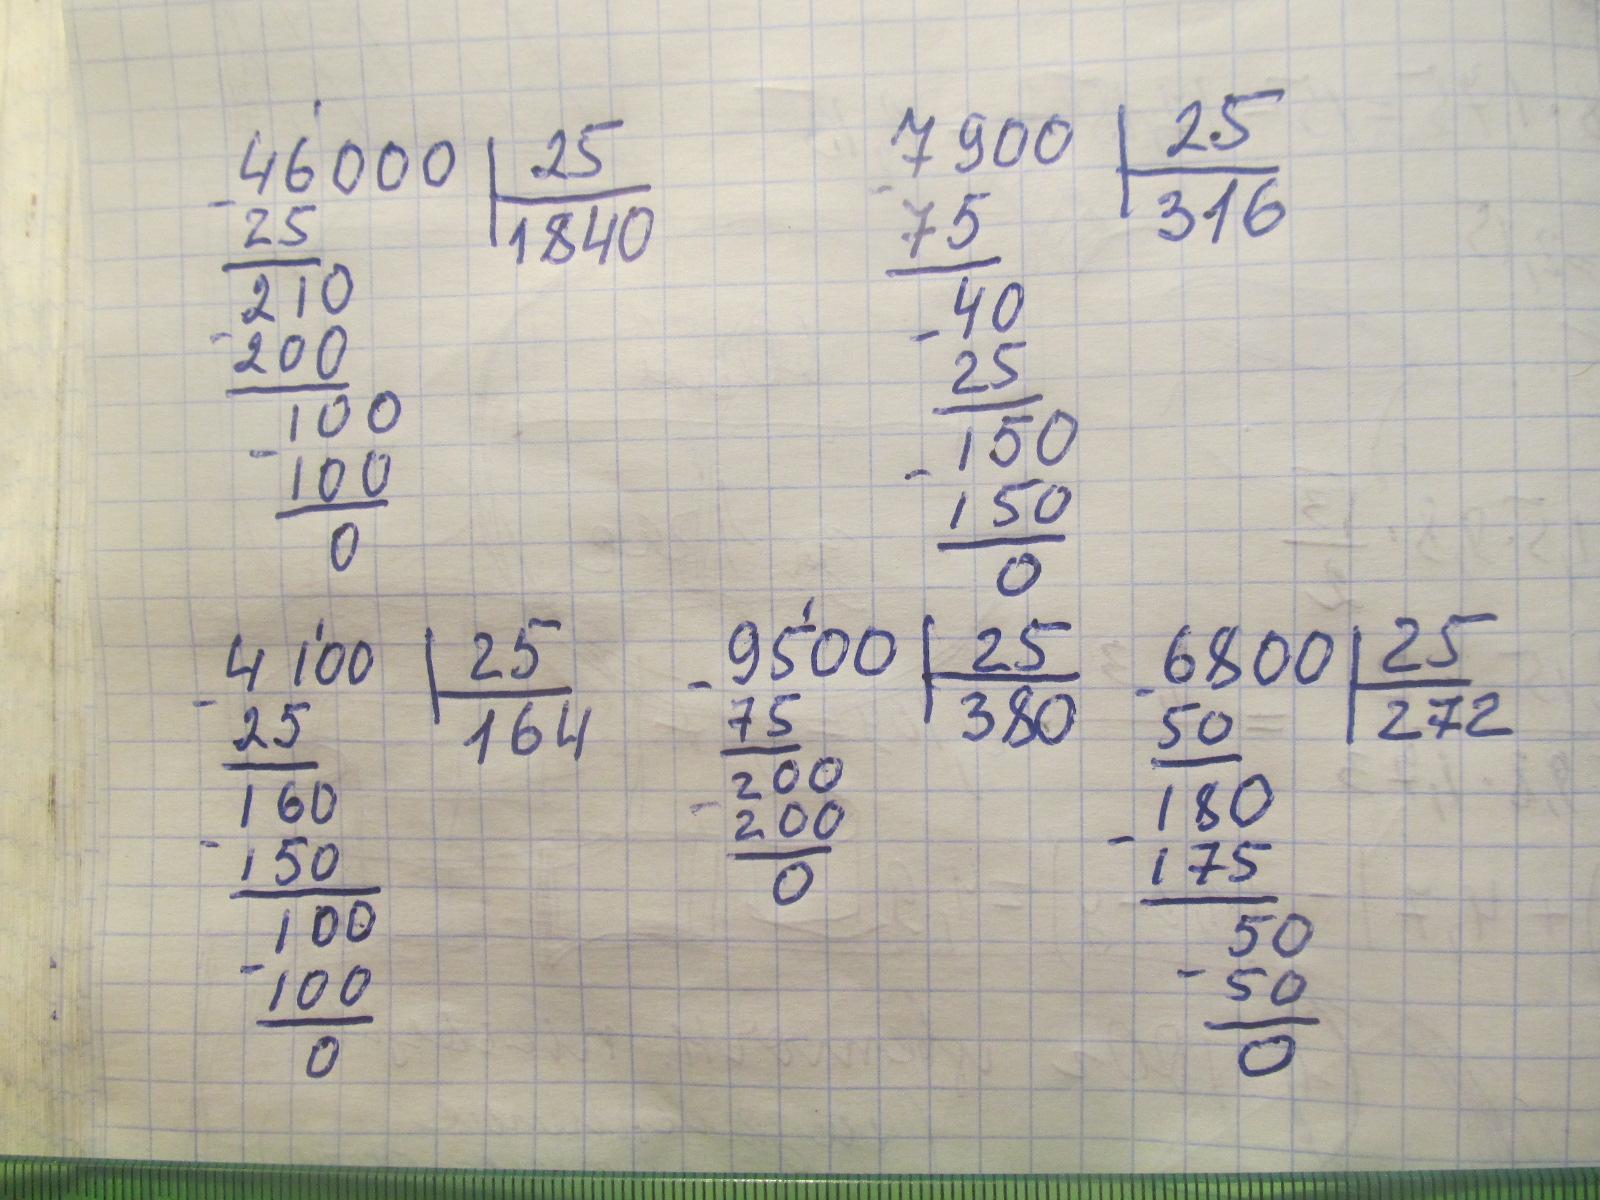 46000 25
- 25 1840
210
- 200
100
- 100
0
7900 25
- 75 316
40
- 25
150
- 150
0
4100 25
- 25 164
160
- 150
100
- 100
0
9500 25
- 75 380
200
- 200
0
6800 25
- 50 272
180
- 175
50
- 50
0